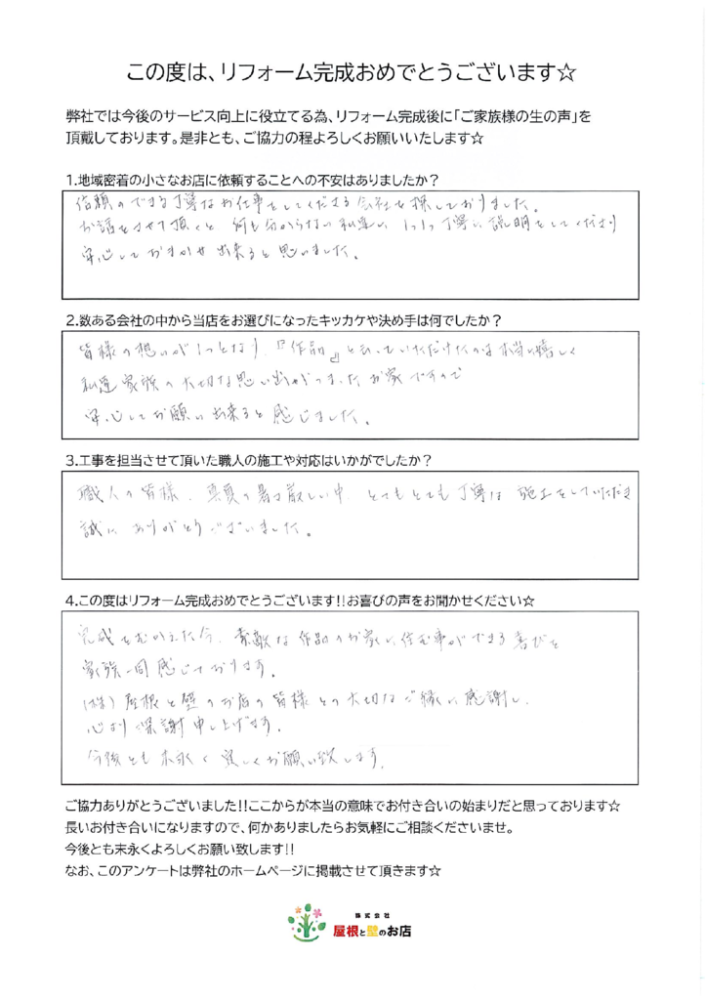 この度は、リフォーム完成おめでとうございます☆
弊社では今後のサービス向上に役立てる為、リフォーム完成後に「ご家族様の生の声」を
頂戴しております。是非とも、ご協力の程よろしくお願いいたします☆
1.地域密着の小さなお店に依頼することへの不安はありましたか？
信頼のできる丁寧なお仕事をしてくださる会社を探しておりました。
お話をさせて頂くと 何も分からない私達に 1つ1つ丁寧に説明をしてくださり
安心しておまかせ出来ると思いました。
2.数ある会社の中から当店をお選びになったキッカケや決め手は何でしたか？
皆様の想いが1つとなり、『作品』と云っていただけたのは本当に嬉しく
私達家族の大切な思い出がつまったお家ですので
安心してお願い出来ると感じました。
3.工事を担当させて頂いた職人の施工や対応はいかがでしたか？
職人の皆様、真夏の暑さ厳しい中、とてもとても丁寧な施工をしていただき
誠にありがとうございました。
4.この度はリフォーム完成おめでとうございます!!お喜びの声をお聞かせください☆
完成をむかえた今、素敵な作品のお家に住む事ができる喜びを
家族一同感じております。
(株)屋根と壁のお店の皆様との大切なご縁に感謝し、
心より深謝申し上げます。
今後とも末永く宜しくお願い致します。
ご協力ありがとうございました!!ここからが本当の意味でお付き合いの始まりだと思っております☆
長いお付き合いになりますので、何かありましたらお気軽にご相談くださいませ。
今後とも末永くよろしくお願い致します!!
なお、このアンケートは弊社のホームページに掲載させて頂きます☆
株式会社
屋根と壁のお店